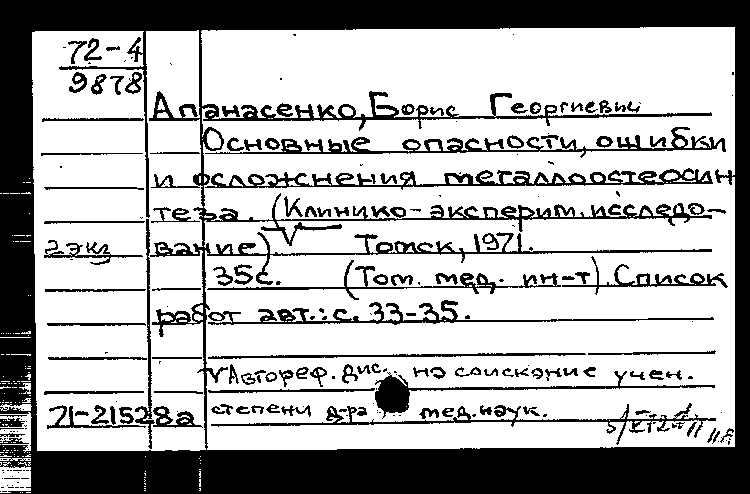 72-4
9878
Апанасенко, Борис Георгиевич
Основные опасности, ошибки
и осложнения металлоостеосин
теза. (Клинико-эксперим. исследо-
2 экз вание) Томск, 1971.
35с. (Том. мед. ин-т). Список
работ авт.: с. 33-35.
Автореф. дис. на соискание учен.
71-21528а степени д-ра мед. наук.